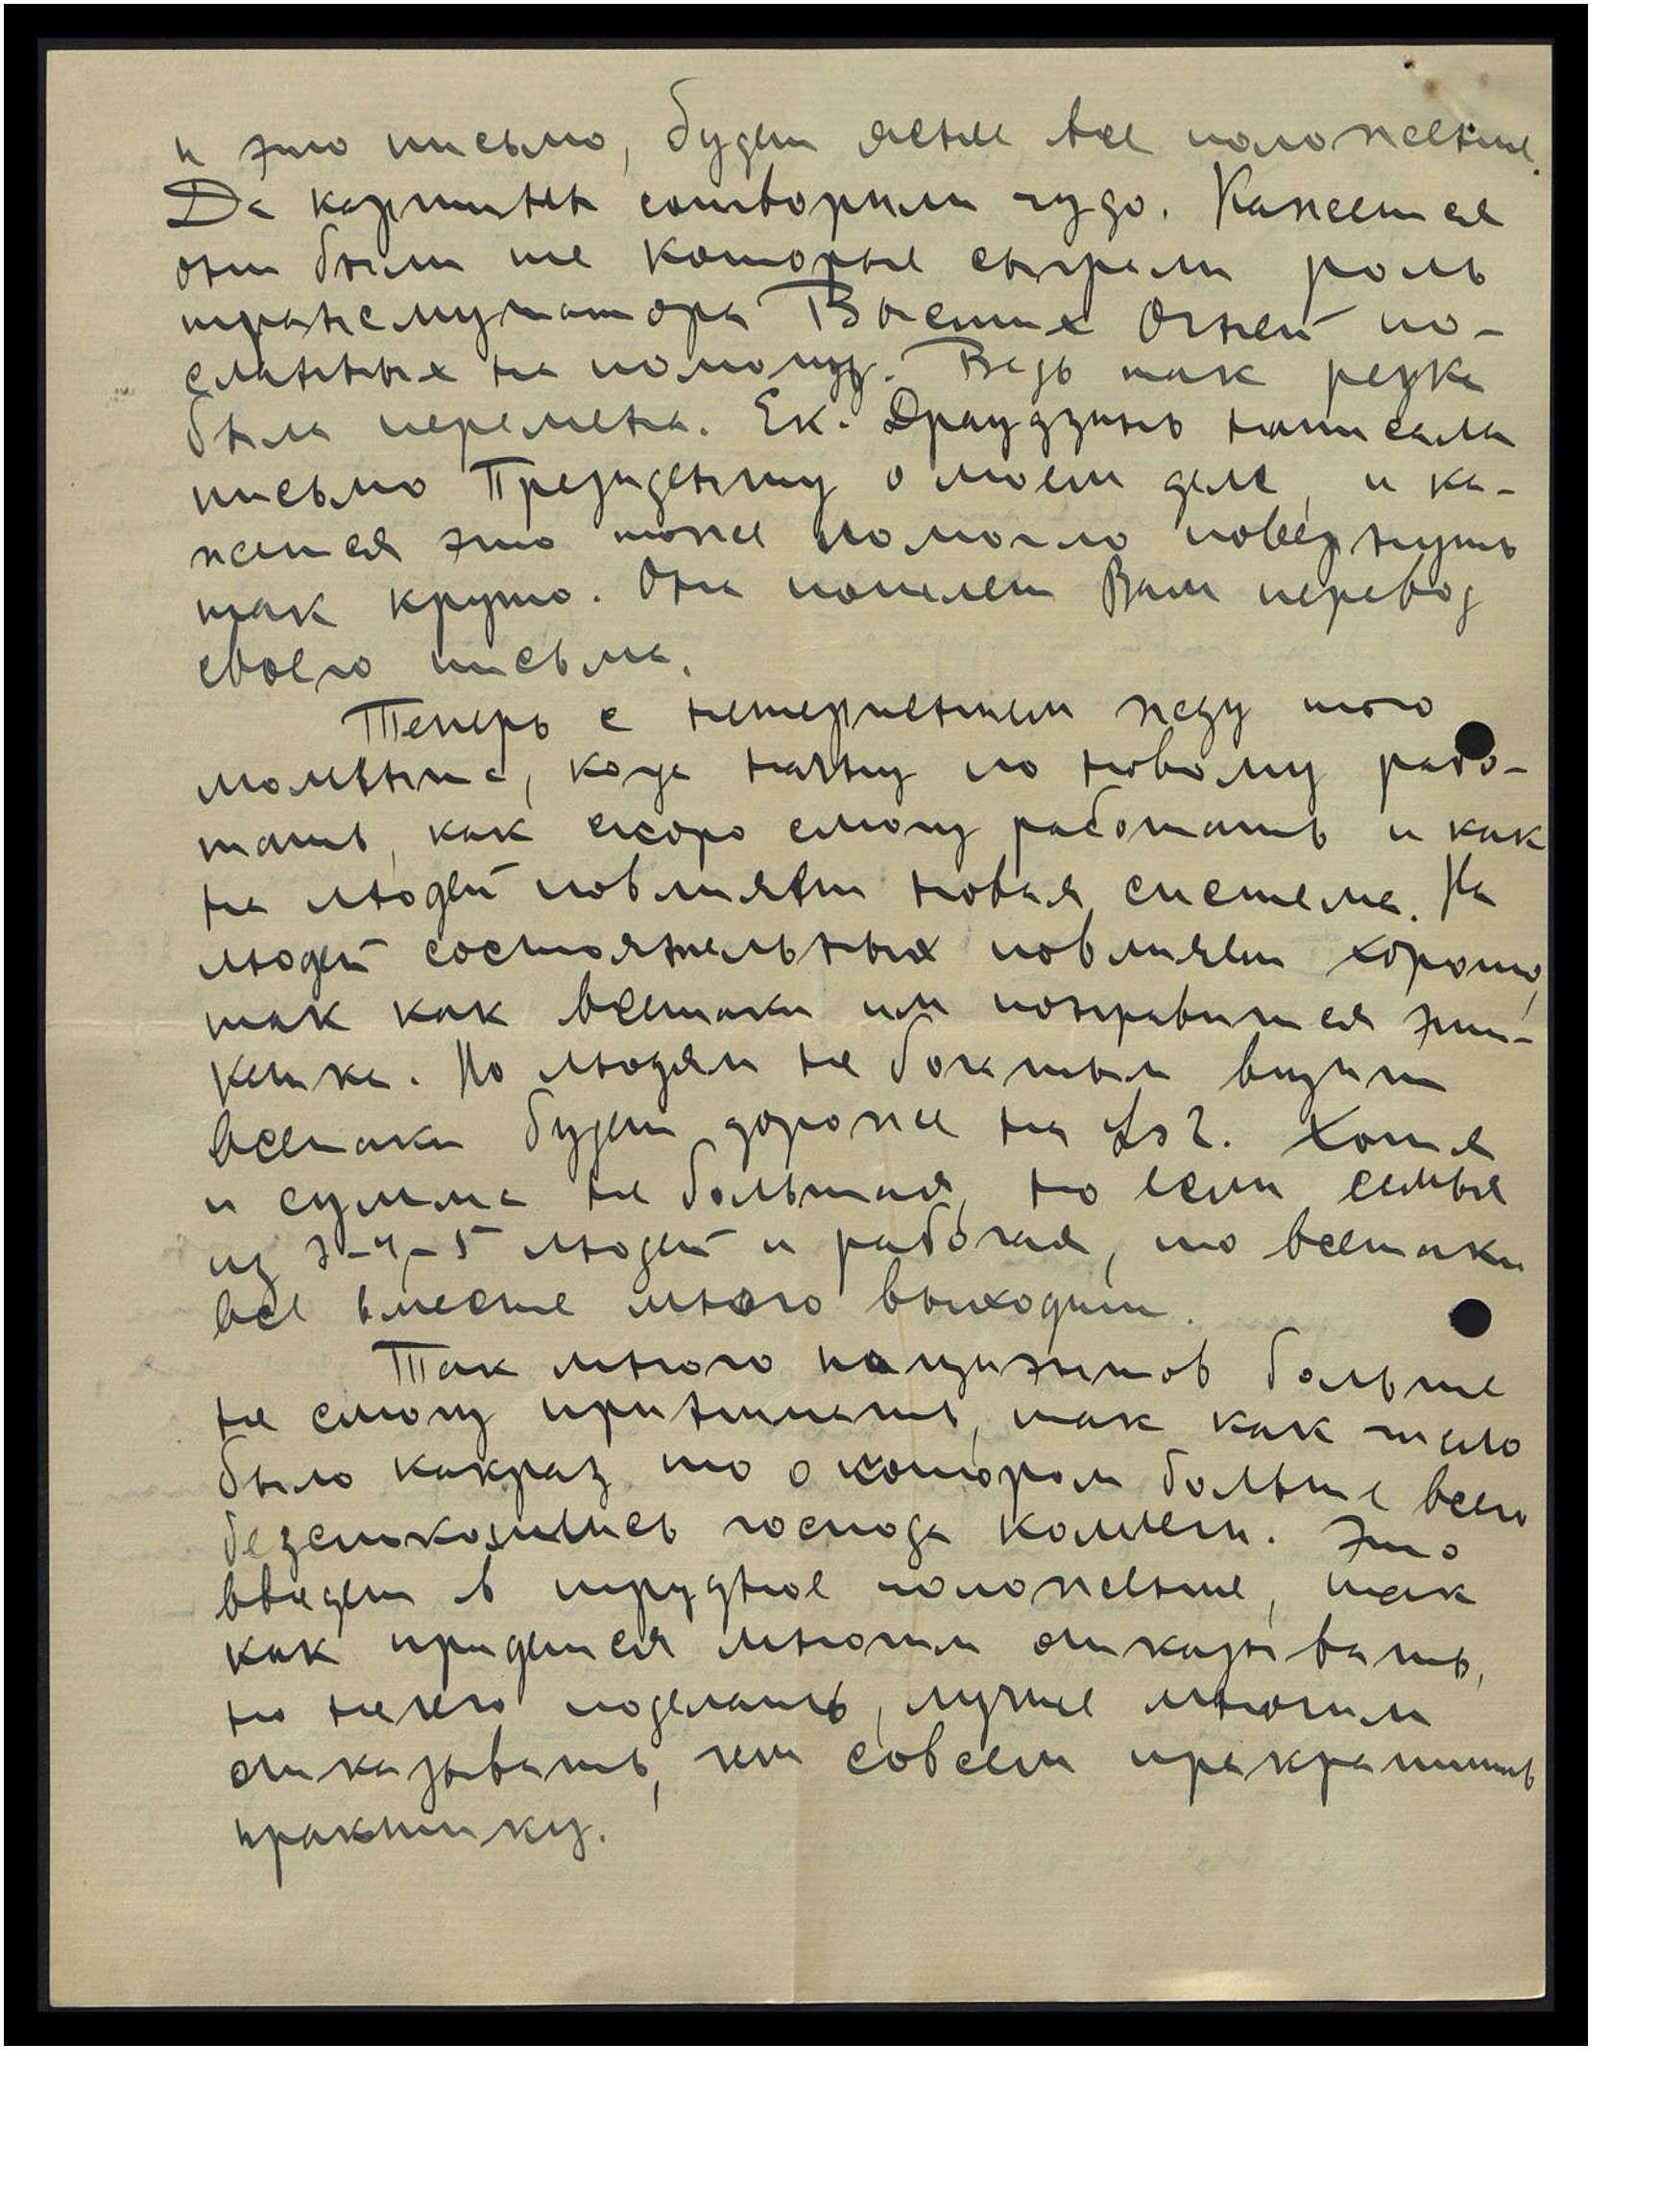 и это письмо, будет яснее все положение.
Да картины сотворили чудо. Кажется
они были те которые сыграли роль
трансмутатора Высших Огней по-
сланных на помощь. Ведь так резка
была перемена. Ек. Драудзинь написала
письмо Президенту о моем деле, и ка-
жется это тоже помогло повернуть
так круто. Она пошлет Вам перевод
своего письма.
Теперь с нетерпением жду того
момента, когда начну по новому рабо-
тать, как скоро смогу работать и как
на людей повлияет новая система. На
людей состоятельных повлияет хорошо,
так как всетаки им понравится эти-
кетка. Но людям не богатым визит
всетаки будет дороже на Ls 2. Хотя
и сумма не большая, но если семья
из 3-4-5 людей и рабочая, то всетаки
все вместе много выходит.
Так много пациэнтов больше
не смогу принимать, так как число
было какраз то о котором больше всего
безспокоились господа коллеги. Это
введет в трудное положение, так
как придется многим отказывать,
но нечего поделать, лучше многим
отказывать, чем совсем прекратить
практику.